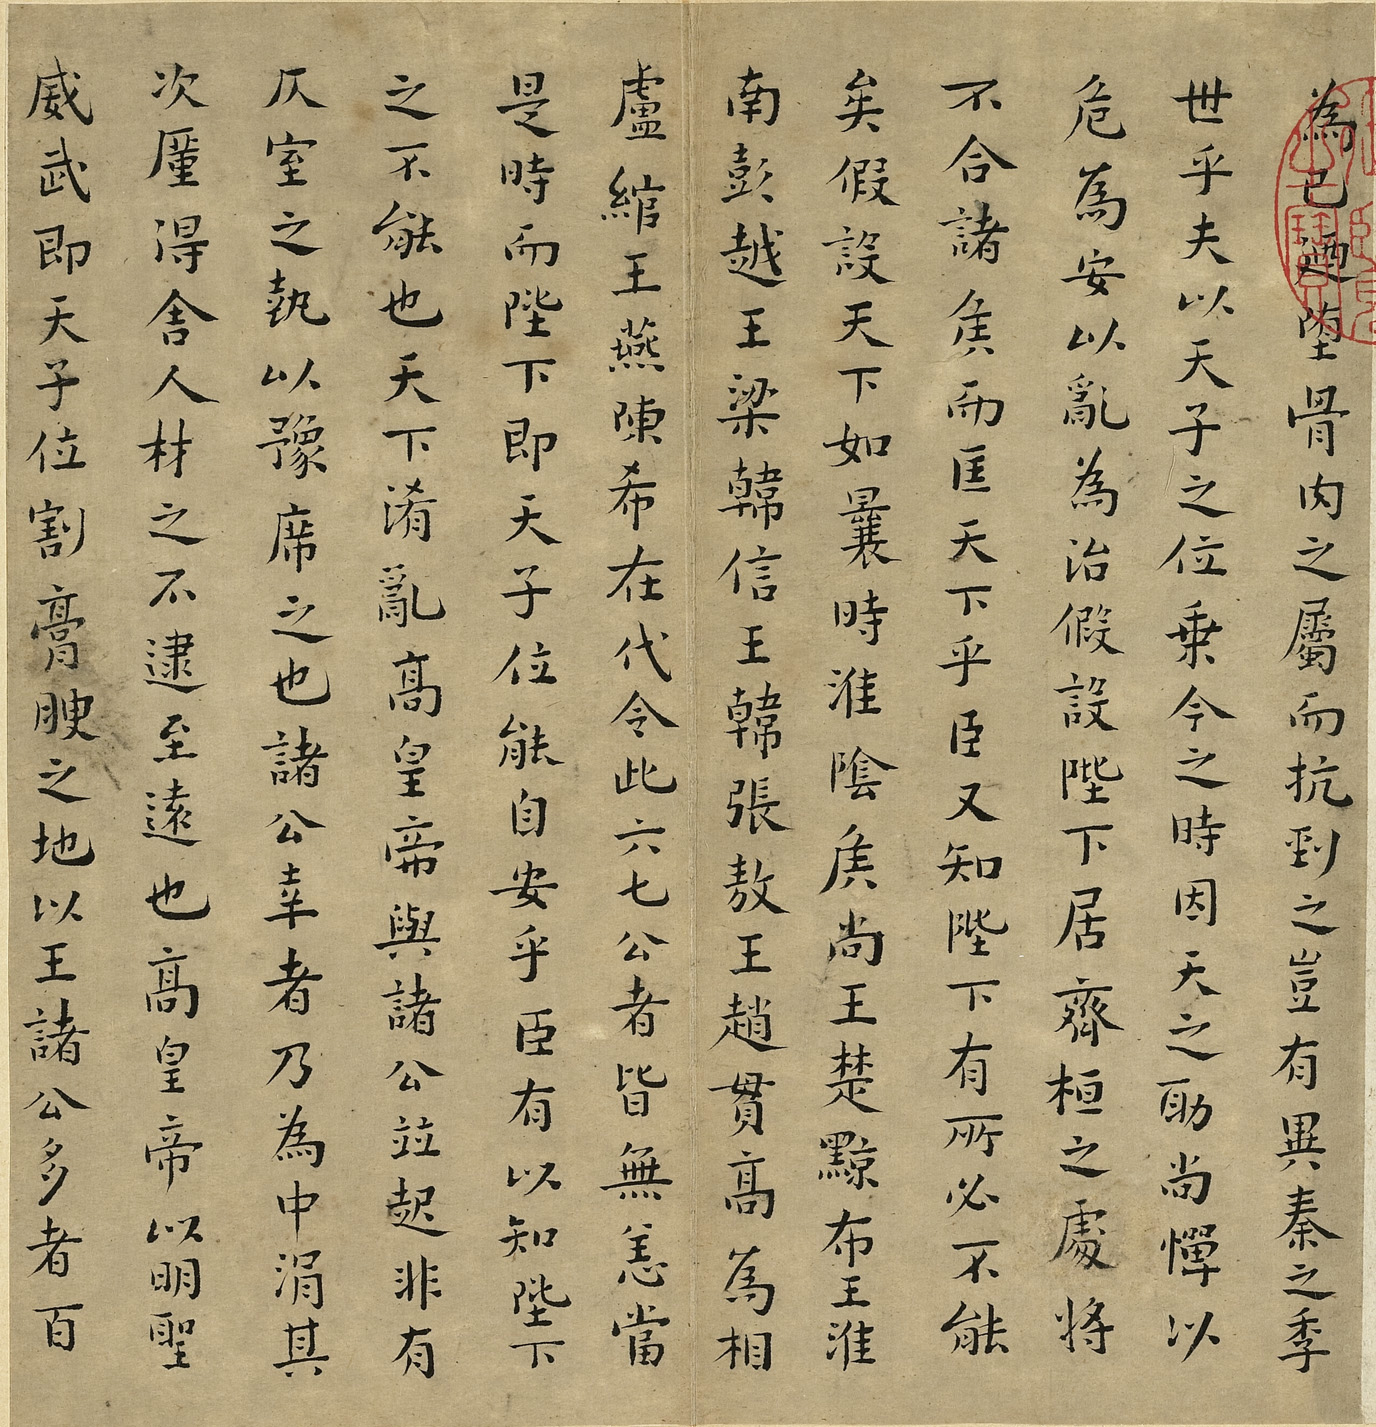 為已廼墮骨肉之屬而抗剄之豈有異秦之季
世乎夫以天子之位乗今之時因天之助尚憚以
危為安以亂為治假設陛下居齊桓之處將
不合諸侯而匡天下乎臣又知陛下有所必不能
矣假設天下如曩時淮陰侯尚王楚黥布王淮
南彭越王梁韓信王韓張敖王趙貫高為相
盧綰王燕陳希在代令此六七公者皆無恙當
是時而陛下即天子位能自安乎臣有以知陛下
之不能也天下淆亂高皇帝與諸公竝起非有
仄室之埶以豫席之也諸公幸者乃為中涓其
次厪得舍人材之不逮至遠也高皇帝以明聖
威武即天子位割膏腴之地以王諸公多者百